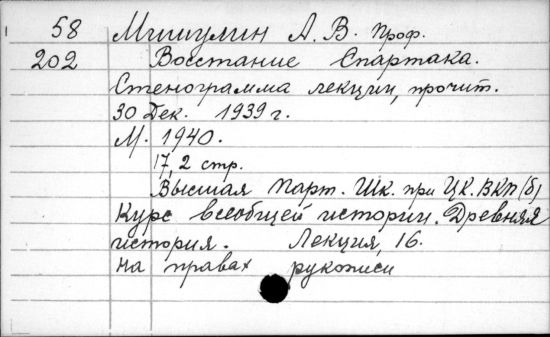 58 Мишулин А. В. Проф.
202 Восстание Спартака.
Стенограмма лекции, прочит.
30 Дек. 1939 г.
М. 1940.
17, 2 стр.
Высшая Парт. Шк. при ЦК. ВКП(б)
Курс всеобщей истории. Древняя
история. Лекция, 16.
на правах рукописи